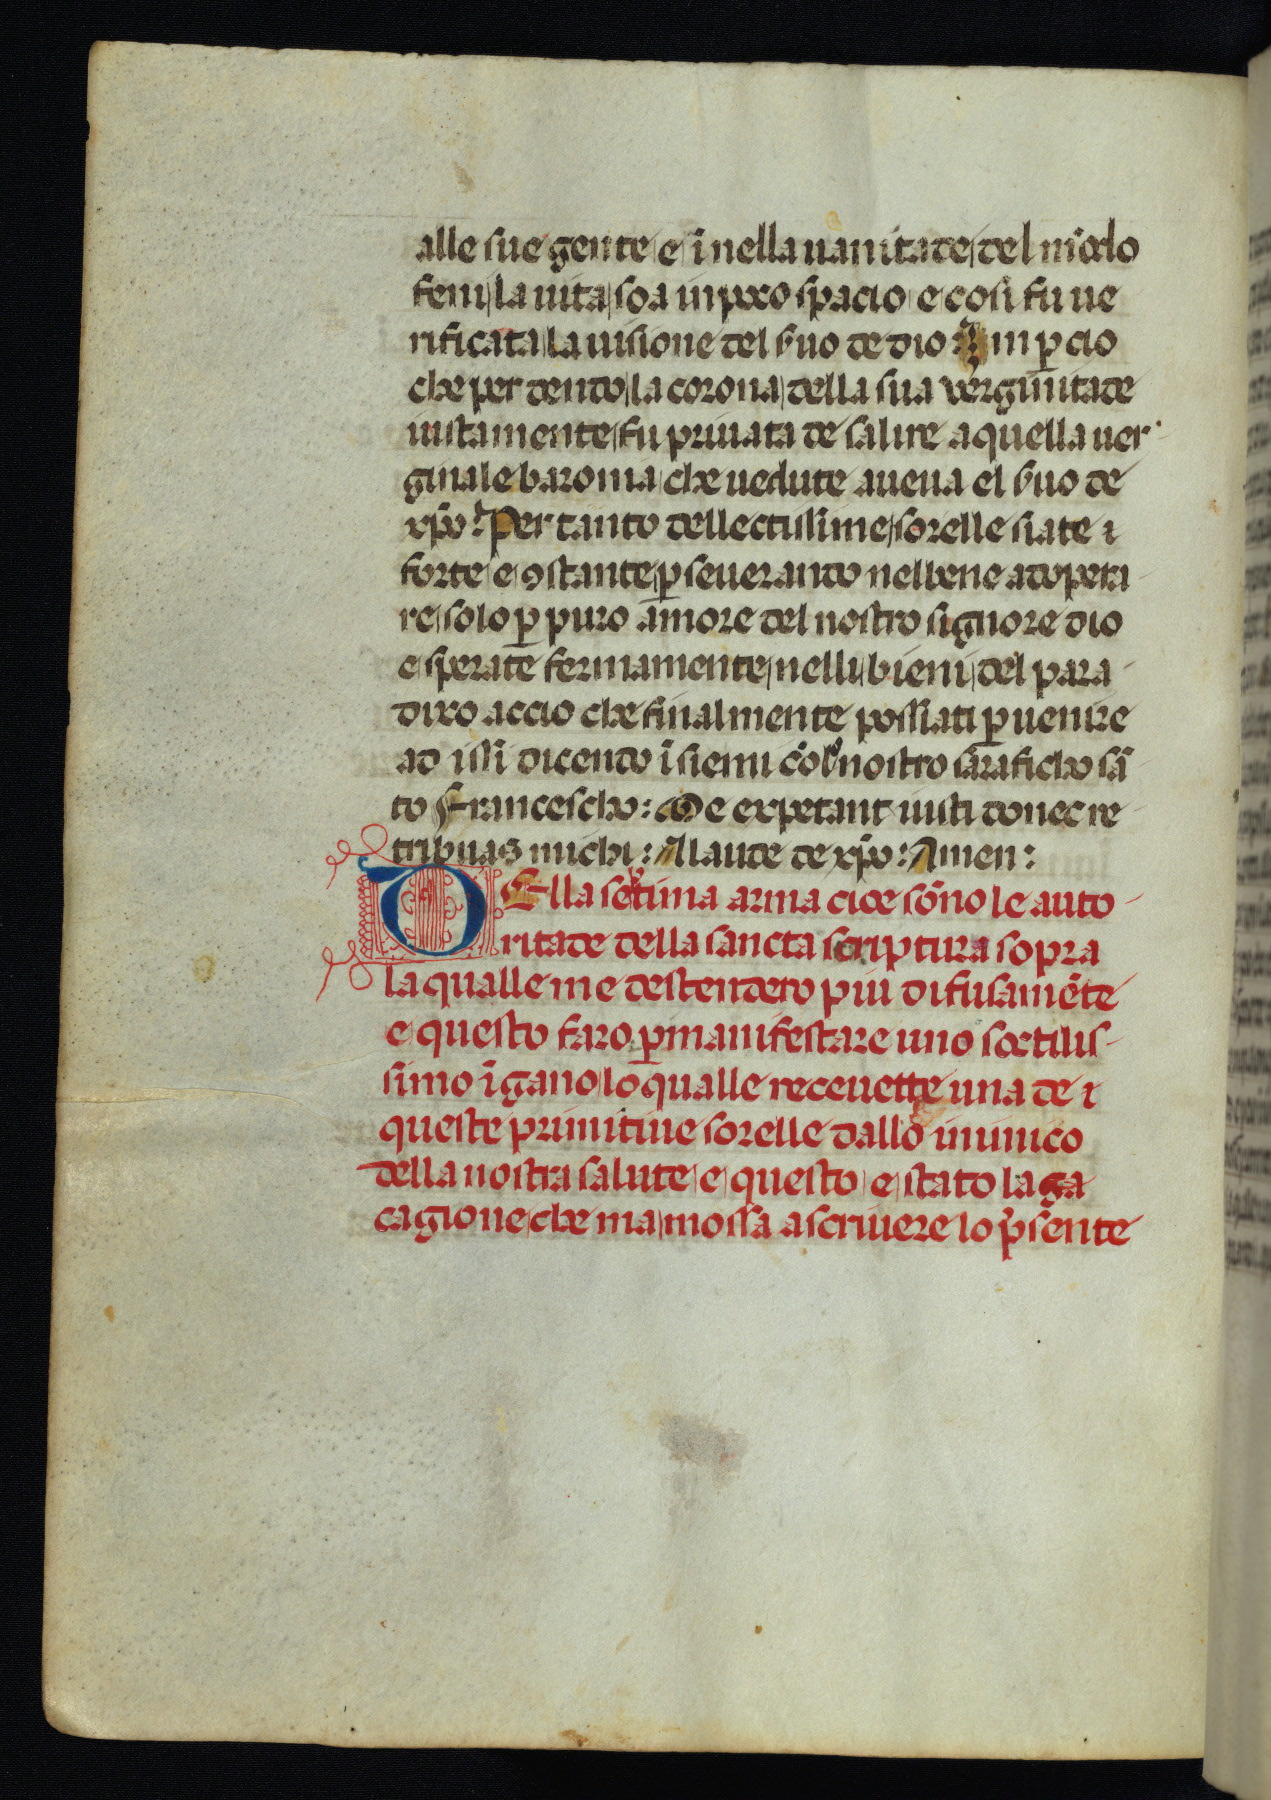 alle sue gente e ĩ nella uanitade del mõdo
feni la uita soa in poco spacio e cosi fu ue
rificata la uisione del suo de dio Imp̱cio
che perdendo la corona della sua verginitade
iustamente fu priuata de salire a quella uer
ginale baronia che uedute aueua el suo de
xp̃o: Per tanto dellectissime sorelle siate i
forte e ꝯstante p̱seuerando nel bene adopera
re solo p̱ puro amore del nostro signore dio
e sperate fermamente nelli bieni del para
dixo accio che finalmente possiati p̱uenire
ad issi dicendo ĩsiemi cõl nostro saraficho sã
to Francescho: Me expetant iusti donec re
tribuas michi: Allaude de xp̃o: Amen:
DElla setima arma cioe sõno le auto
ritade della sancta scriptura sopra
la qualle me destendero piu difusamẽte
e questo faro p̱ manifestare uno soctilis
simo ĩgano lo qualle receuette una de i
queste primitiue sorelle dallo inimico
della nostra salute e questo e stato la ga
cagione che ma mossa a scriuere lo p̃sente